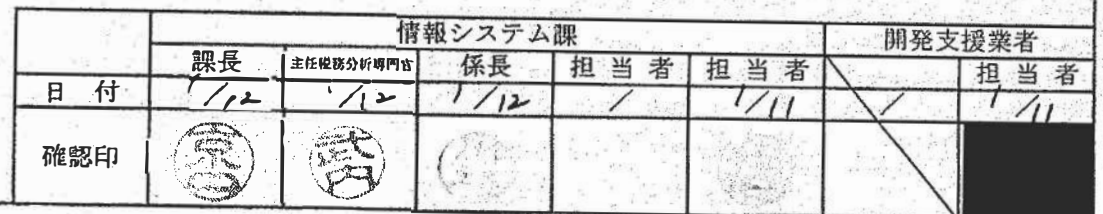 情報システム課 開発支援業者
課長 主任税務分析専門官 係長 担当者 担当者 担当者
日付 1/12 1/12 1/12 / 1/11 / 1/11
確認印 武内